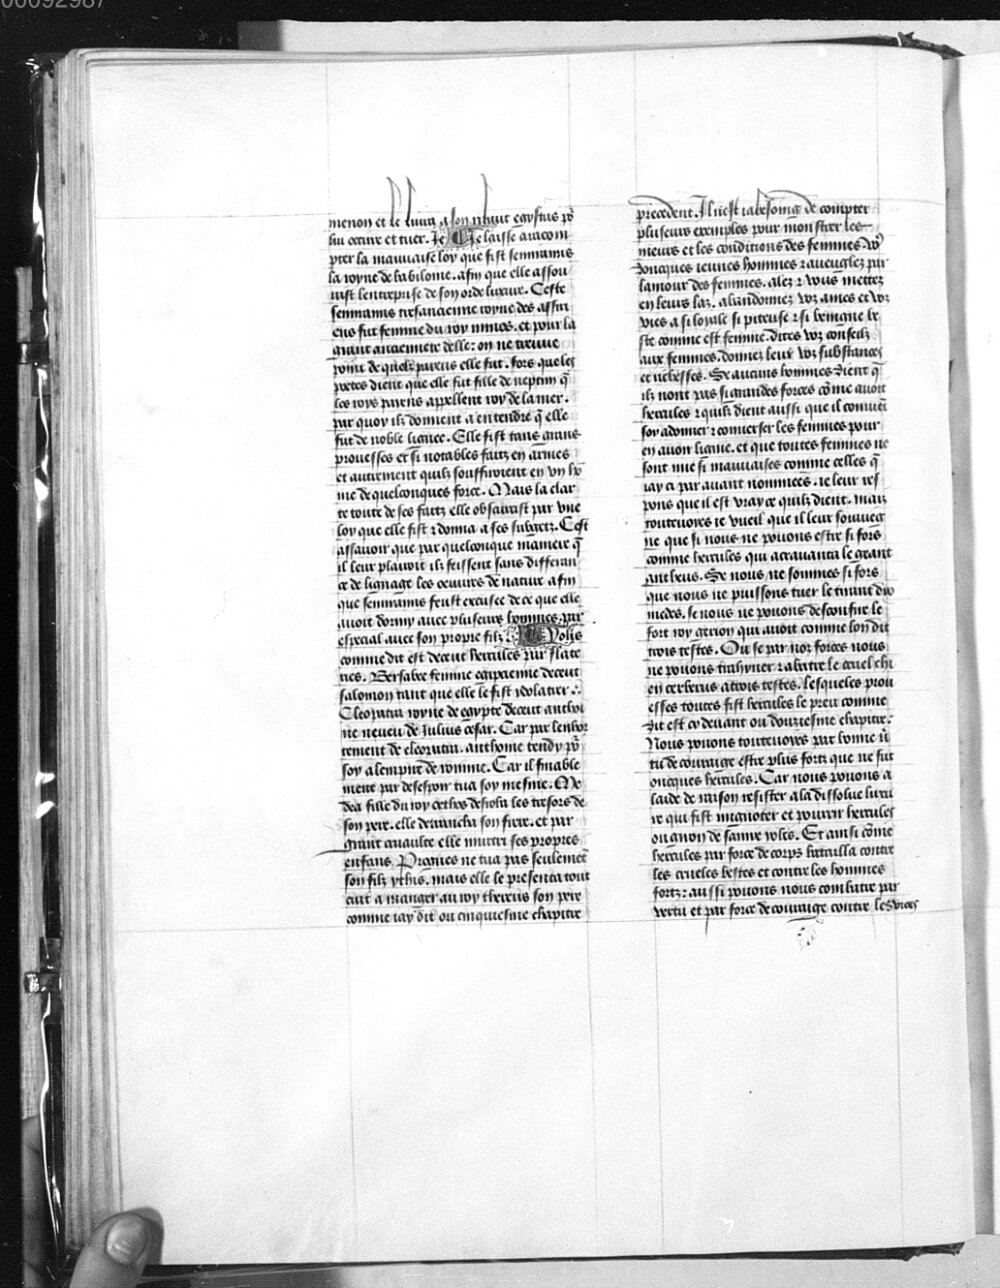 00092987
menon et le livra a son ribaut egystus po'
lui occire et tuer. Je Je laisse a racom
pter la mauvaise loy que fist semiramis
la royne de babilonie. afin que elle assou
vist lentreprise de son orde luxure. Ceste
semiramis tresancienne royne des assiri
ens fut femme du roy ninus. et pour la
grant anciennete delle: on ne treuve
point de quelz parens elle fut. fors que les
poetes dient que elle fut fille de neptun q̄
les roys payens appellent roy de la mer.
par quoy ilz donnent a entendre q̄ elle
fut de noble lignee. Elle fist tans grans
prouesses et si notables faitz en armes
et autrement quilz souffiroient en vn ho
me de quelconques force. Mais la clar
te toute de ses faitz elle obscurcist par vne
loy que elle fist ⁊ donna a ses subgetz. Cest
assavoir que par quelconque maniere q̄
il leur plairoit ilz feissent sans differen
ce de lignage les oeuvres de nature afin
que semiramis feust excusee de ce que elle
avoit dormy avec pluseurs hommes. par
especial avec son propre filz. Yolis
comme dit est deceut hercules par flate
ries. Bersabee femme egipcienne deceut
salomon tant que elle le fist ydolatrer.
Cleopatra royne de egypte deceut anthoi
ne neveu de Julius cesar. Car par lenhor
tement de cleopatra. anthoine tendy po'
soy a lempire de romme. Car il finable
ment par desespoir tua soy mesme. Me
dea fille du roy oethes desroba les tresors de
son pere. elle detrancha son frere. et par
grant cruaulte elle murtri ses propres
enfans. Prognes ne tua pas seulement
son filz ythis. mais elle le presenta tout
cuit a manger au roy thereus son pere
comme iay dit ou cinquiesme chapitre
precedent. Il nest ia besoing de compter
pluseurs exemples pour monstrer les
meurs et les conditions des femmes. Vo'
doncques ieunes hommes ⁊ aveuglez par
lamour des femmes. alez ⁊ vous mettez
en leurs laz. abandonnez voz ames et voz
vies a si loyale si piteuse ⁊ si benigne be
ste comme est femme. dites voz conseilz
aux femmes. donnez leur voz substances
et richesses. Se aucuns hommes dient q̄
ilz nont pas si grandes forces cōme avoit
hercules ⁊ quilz dient aussi que il convient
soy adonner ⁊ converser les femmes pour
en avoir lignie. et que toutes femmes ne
sont mie si mauvaises comme celles q̄
iay ci par avant nommees. ie leur res
pons que il est vray ce quilz dient. mais
toutevoies ie vueil que il leur souviei
ne que si nous ne povons estre si fors
comme hercules qui acravanta le grant
antheus. Se nous ne sommes si fors
que nous ne puissons tuer le tirant dio
medes. se nous ne povons desconfire le
fort roy gerion qui avoit comme lon dit
trois testes. Ou se par noz forces nous
ne povons trahyner ⁊ abatre le cruel chi
en cerberus a trois testes. lesqueles prou
esses toutes fist hercules le preu comme
dit est cy devant ou douziesme chapitre.
Nous povons toutevoyes par bonne v̄
tu de couraige estre plus fortz que ne fut
oncques hercules. Car nous povons a
laide de raison resister a la dissolue luxu
re qui fist mignoter et pourrir hercules
ou giron de samie yolis. Et ainsi cōme
hercules par force de corps batailla contre
les crueles bestes et contre les hommes
fortz: aussi povons nous combatre par
vertu et par force de couraige contre les vices